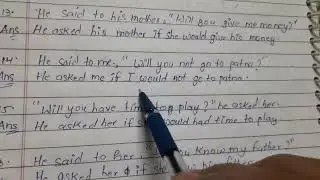 13. He said to his mother, "Will you give me money?"
Ans He asked his mother if she would give his money
14. He said to me, "Will you not go to patna?"
Ans He asked me if I would not go to patna.
15. "Will you have time to play?" he asked her.
Ans He asked her if she would had time to play.
He said to her, you know my father?"
Ans He asked her if she his father